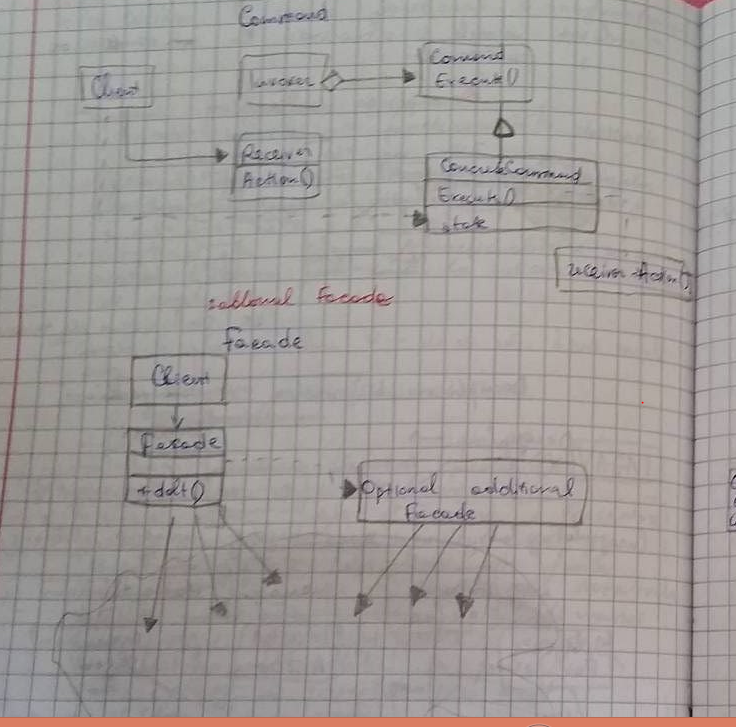 Command
Client
Invoker
Command
Execute()
Receiver
Action()
ConcreteCommand
Execute()
state
receiver Action()
Facade
Facade
Client
Facade
+doIt()
Optional additional
Facade